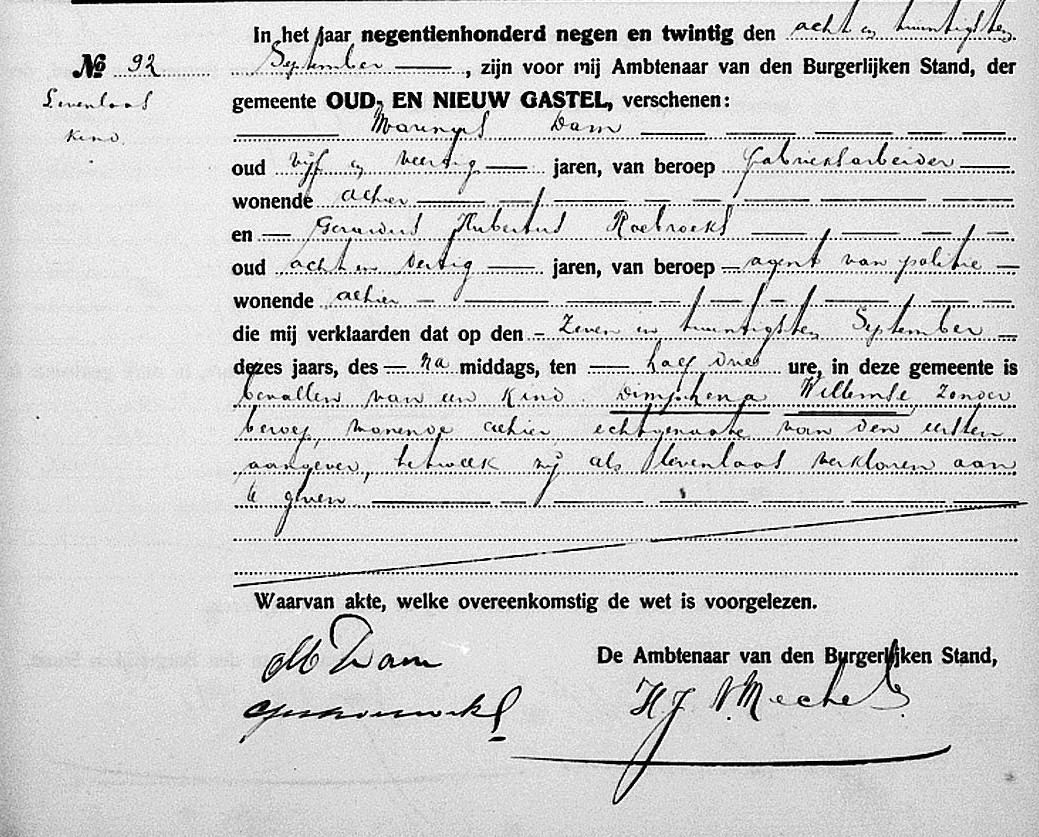 In het jaar negentienhonderd negen en twintig den acht en twintigsten
No 92
September, zijn voor mij Ambtenaar van den Burgerlijken Stand, der
Levenloos
kind.
gemeente OUD- EN NIEUW GASTEL, verschenen:
Marinus Dam
oud vijf en veertig jaren, van beroep fabrieksarbeider
wonende alhier
en Gerardus Hubertus Roebroeks
oud acht en dertig jaren, van beroep agent van politie
wonende alhier
die mij verklaarden dat op den zeven en twintigsten September
dezes jaars, des na middags, ten half drie ure, in deze gemeente is
bevallen van een kind Dimphena Willemse, zonder
beroep, wonende alhier, echtgenoote van den eersten
aangever, hetwelk zij als levenloos verklaren aan
te geven
Waarvan akte, welke overeenkomstig de wet is voorgelezen.
De Ambtenaar van den Burgerlijken Stand,
M Dam